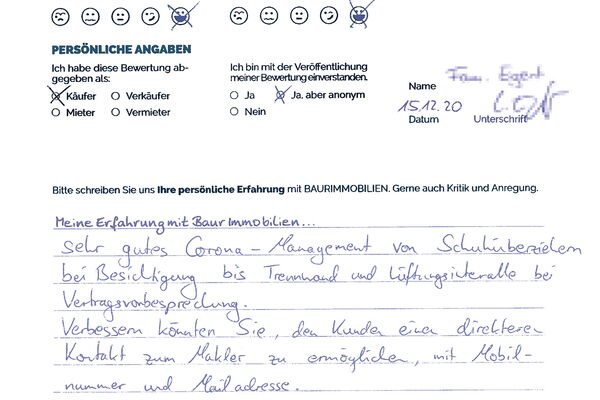 PERSÖNLICHE ANGABEN
Ich habe diese Bewertung ab-
gegeben als:
Käufer Verkäufer
Mieter Vermieter
Ich bin mit der Veröffentlichung
meiner Bewertung einverstanden.
Ja Ja, aber anonym
Nein
Name
15.12.20
Datum Unterschrift
Bitte schreiben Sie uns Ihre persönliche Erfahrung mit BAURIMMOBILIEN. Gerne auch Kritik und Anregung.
Meine Erfahrung mit Baur Immobilien...
Sehr gutes Corona-Management von Schuhüberziehern
bei Besichtigung bis Trennwand und Lüftungsintervalle bei
Vertragsvorbesprechung.
Verbessern könnten Sie, den Kunden einen direkteren
Kontakt zum Makler zu ermöglichen, mit Mobil-
nummer und Mailadresse.